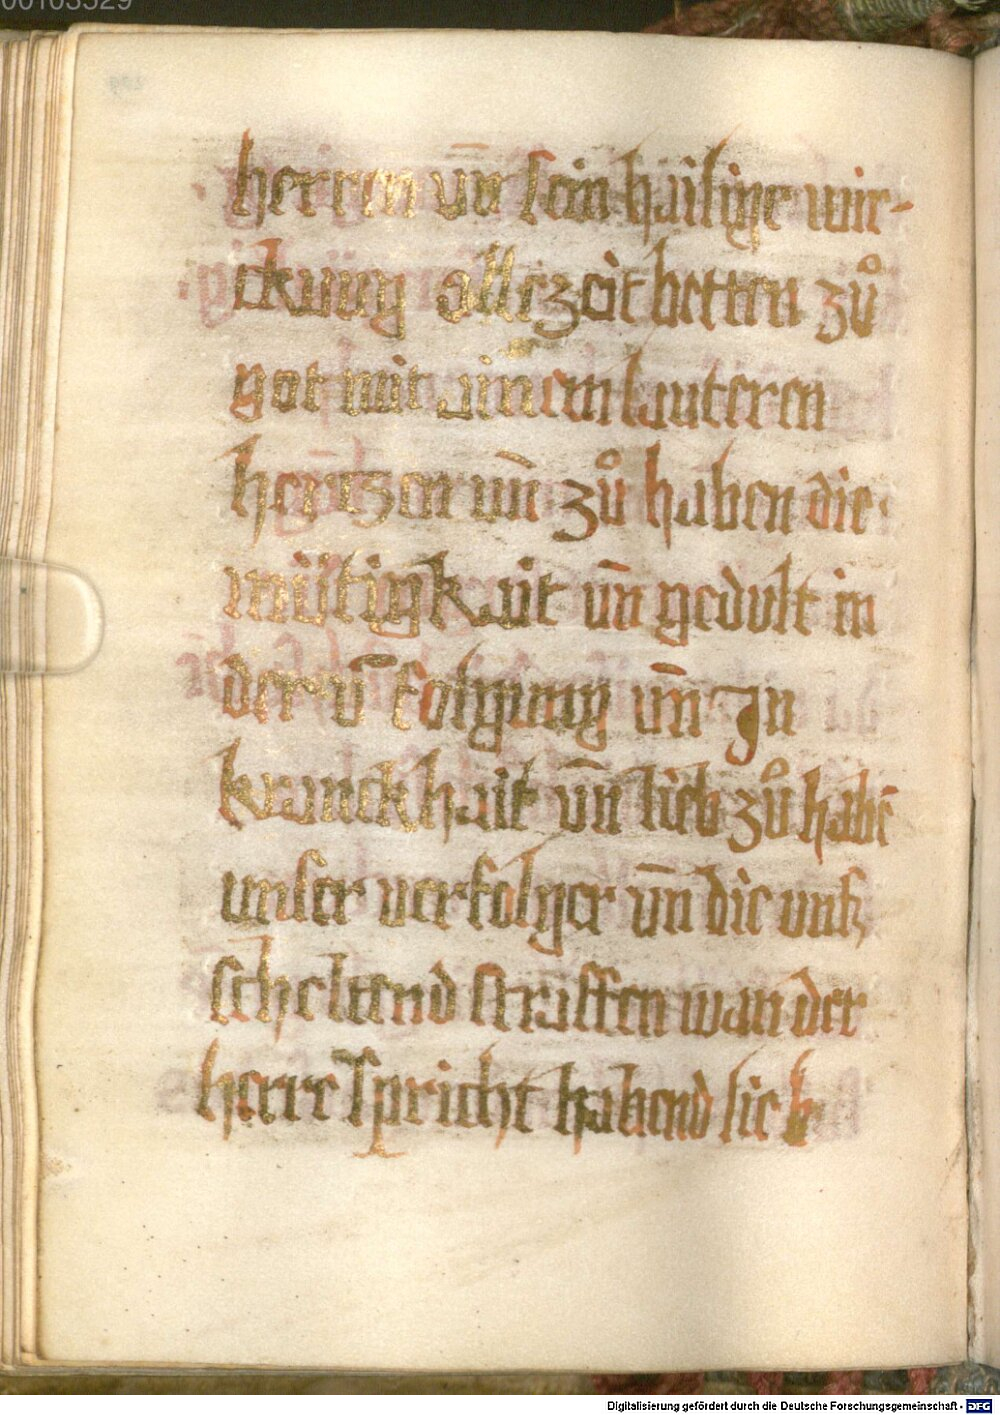 00103529
herren vn̄ sein häilige wir-
ckung allezeit betten zů
got mit ainem lauteren
hertzen vn̄ zů haben die
mütigkait vn̄ gedult in
der v̄folgung vn̄ Jn
kranckhait vn̄ lieb zů habē
unser verfolger vn̄ die vnß
scheltend straffen wan der
herre spricht habend lieb
Digitalisierung gefördert durch die Deutsche Forschungsgemeinschaft - DFG